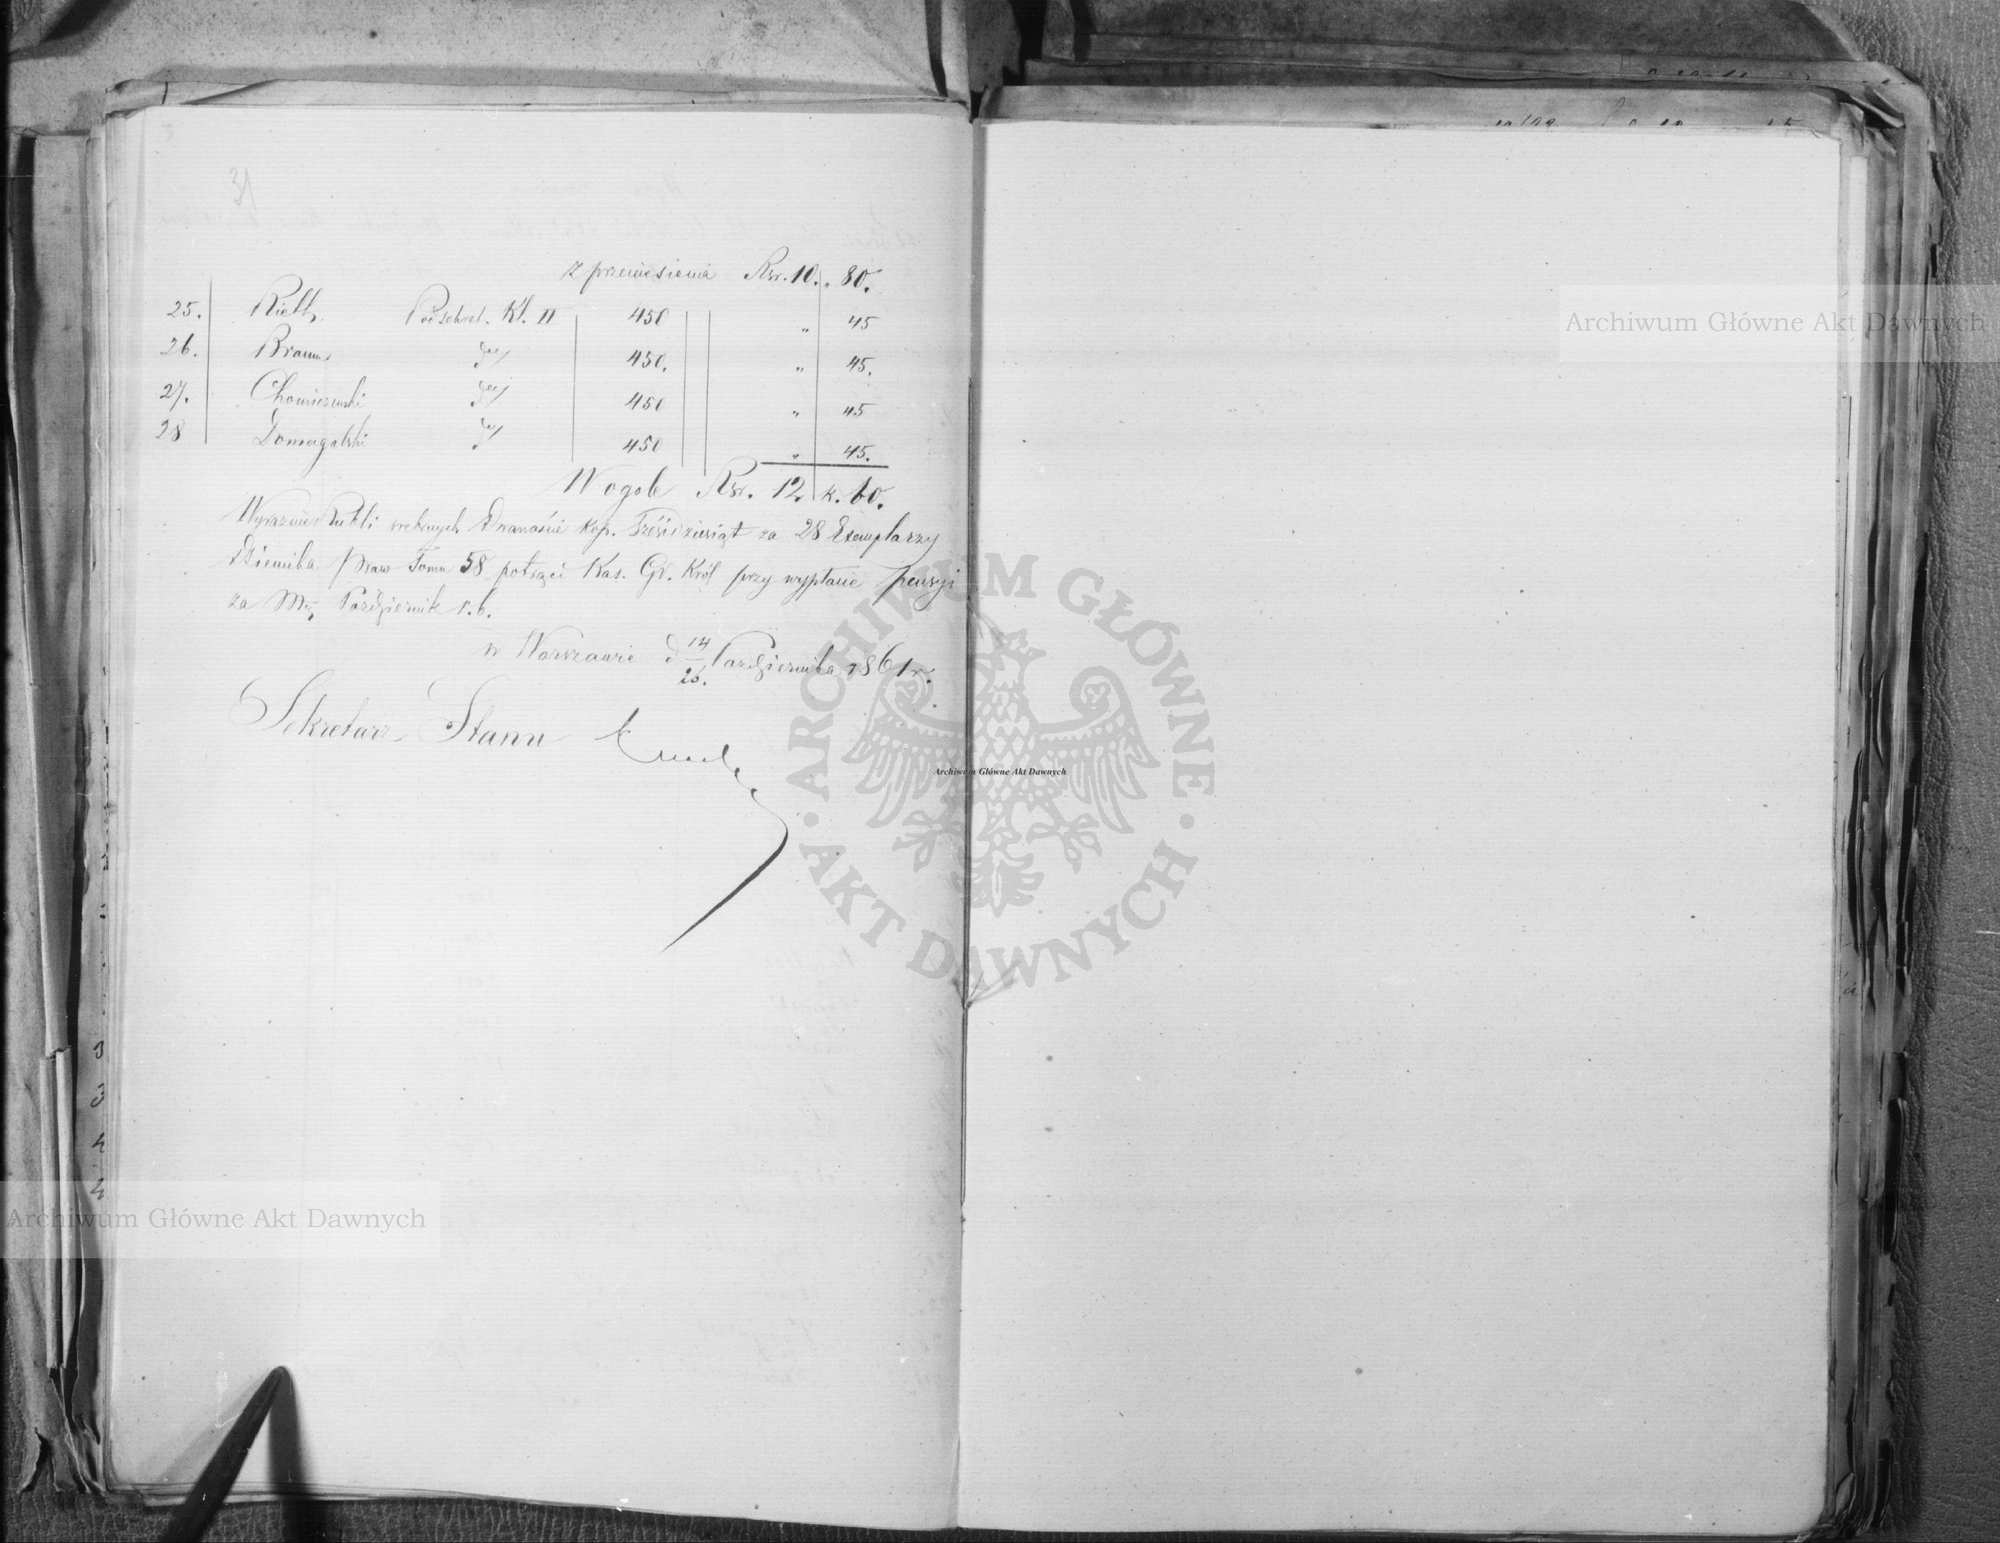 31
z przeniesienia Rsr. 10. „ 80.
25. Rieth Podsekret. Kl. II 450 „ 45
26. Braun dej 450. „ 45.
27. dej 450 „ 45
28 Domagalski dej 450 „ 45.
Wogole Rsr. 12. k. 60.
Wyraznie Rubli srebrnych Dwanaście kop. Sześćdziesiąt za 28 Exemplarzy
Dziennika praw Tomu 58 potrąci Kas. Gł. Król przy wypłacie pensyi
za Mc Październik r. b.
w Warszawie d 14/26. Października 1861 r.
Sekretarz Stanu
Archiwum Główne Akt Dawnych
Archiwum Główne Akt Dawnych
Archiwum Główne Akt Dawnych
ARCHIWUM GŁÓWNE · AKT DAWNYCH ·